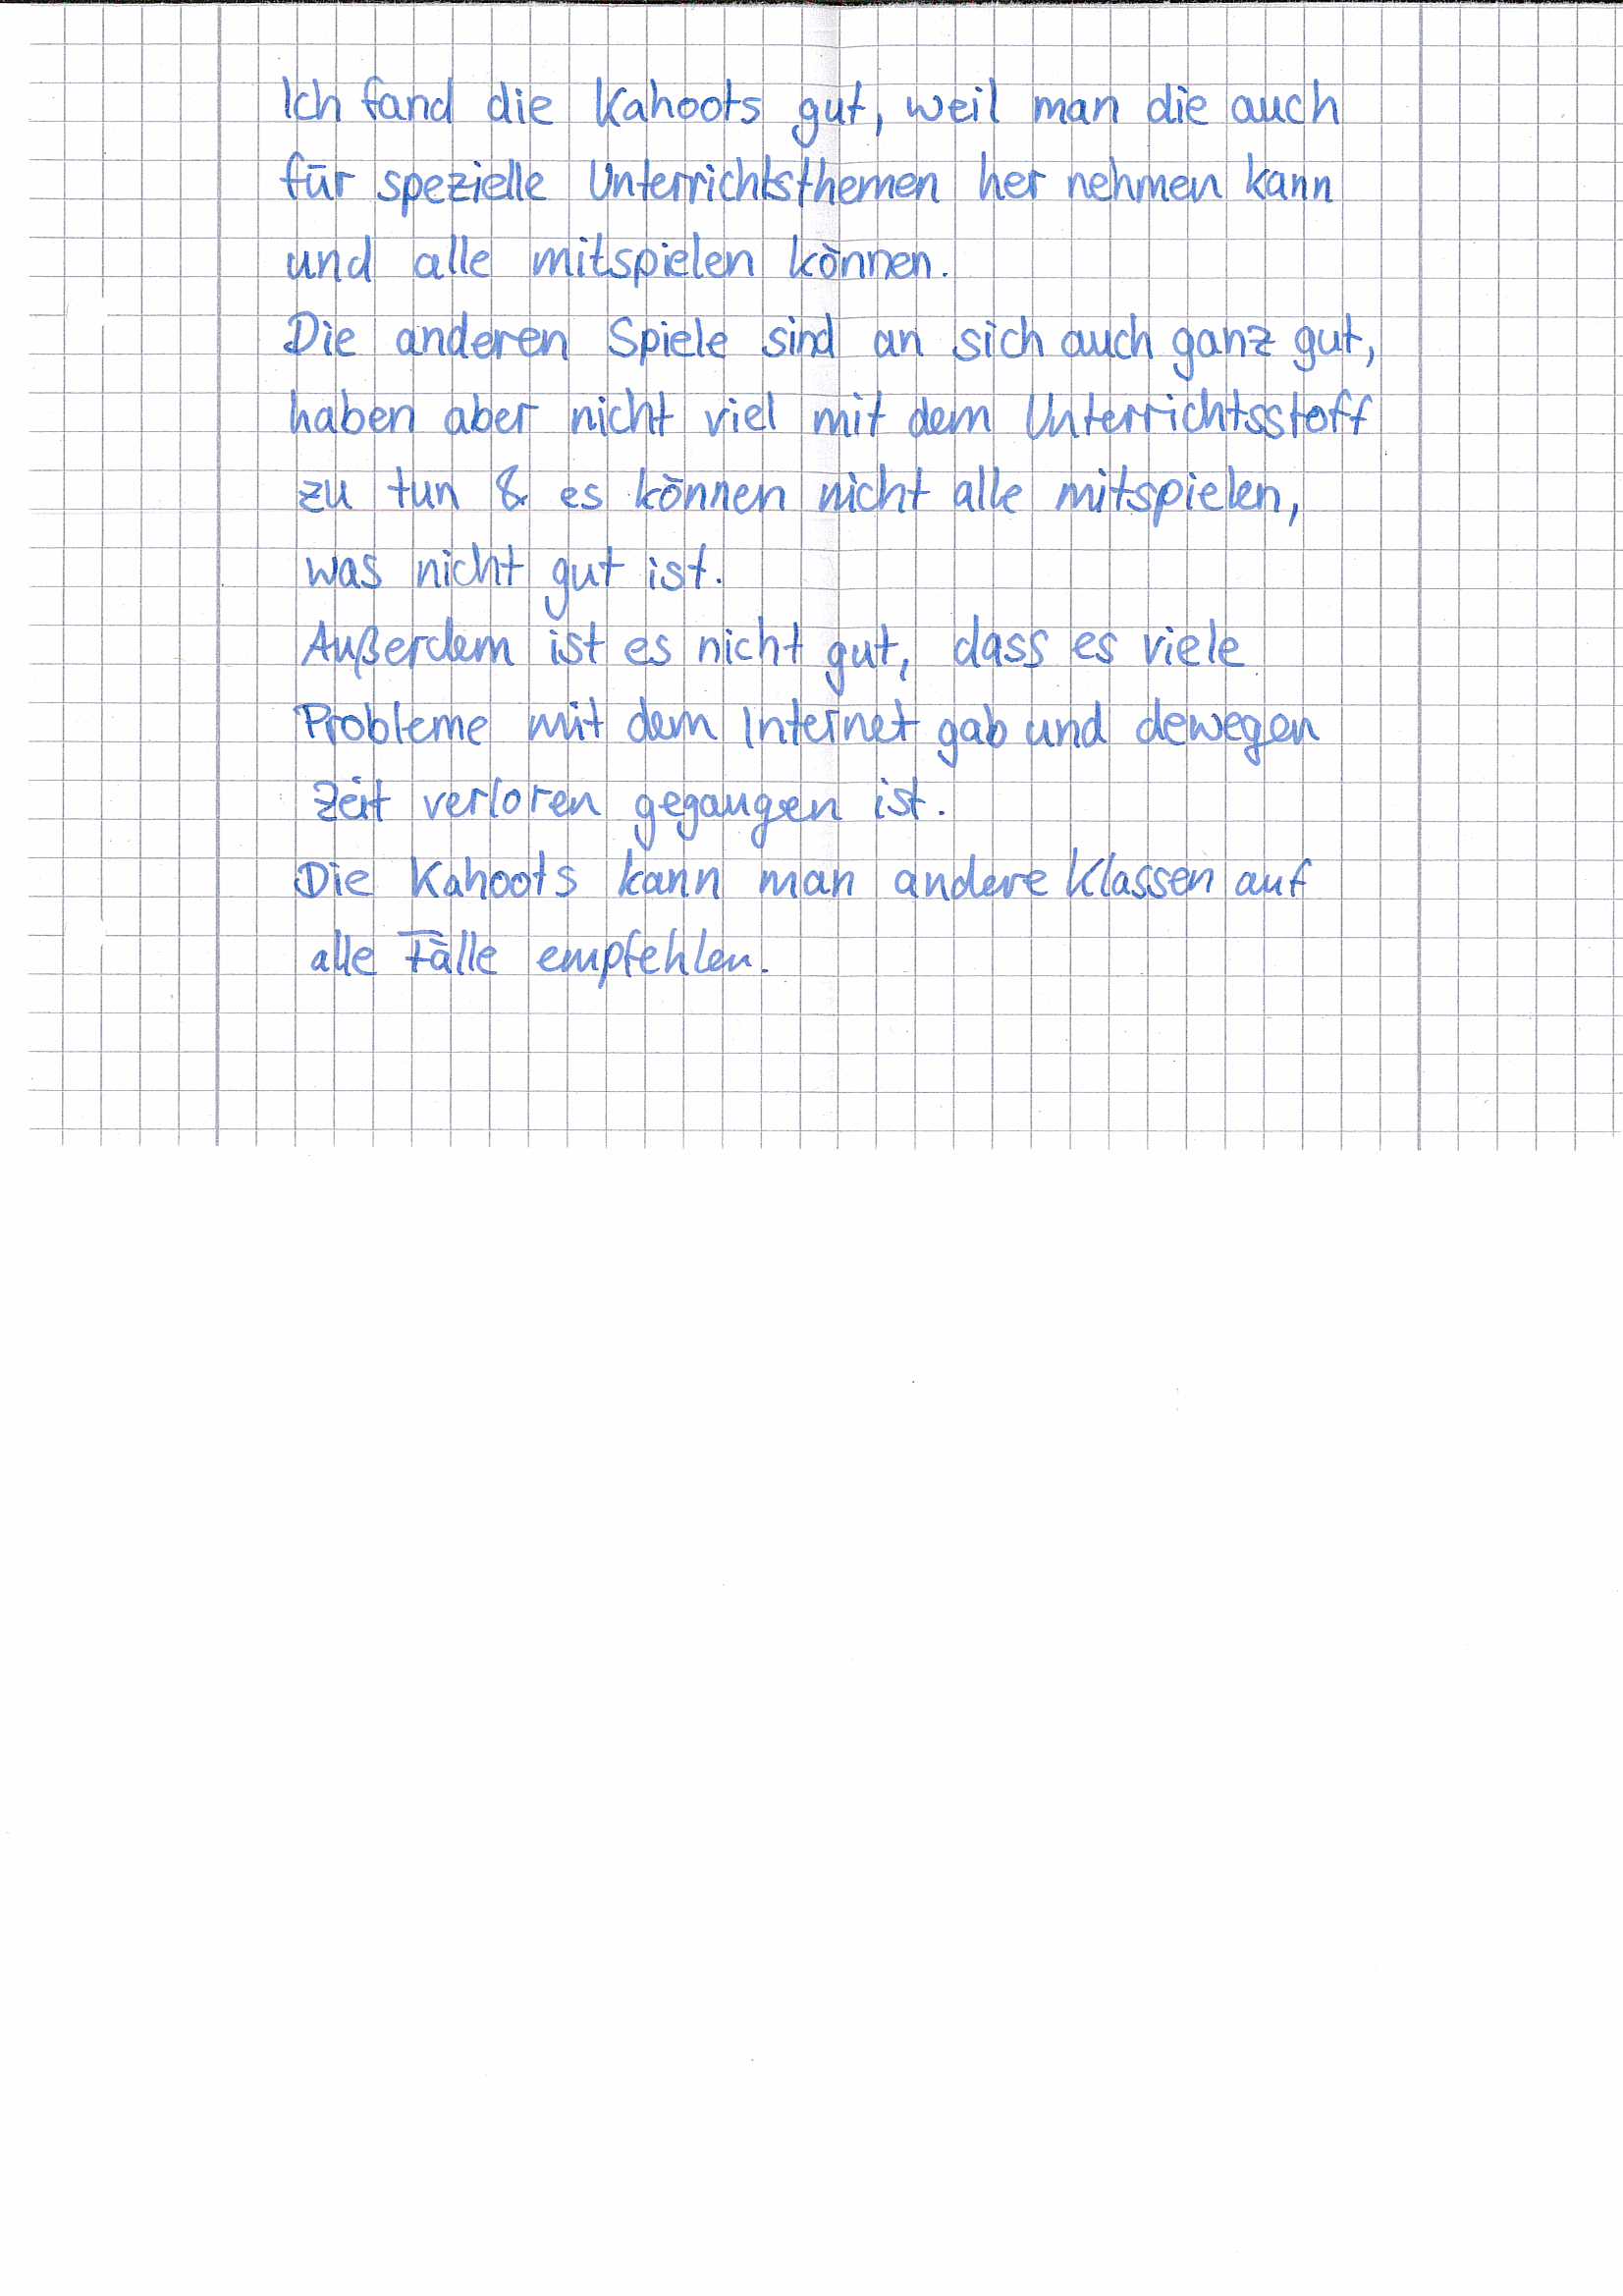 Ich fand die Kahoots gut, weil man die auch
für spezielle Unterrichtsthemen her nehmen kann
und alle mitspielen können.
Die anderen Spiele sind an sich auch ganz gut,
haben aber nicht viel mit dem Unterrichtsstoff
zu tun & es können nicht alle mitspielen,
was nicht gut ist.
Außerdem ist es nicht gut, dass es viele
Probleme mit dem Internet gab und dewegen
Zeit verloren gegangen ist.
Die Kahoots kann man andere Klassen auf
alle Fälle empfehlen.